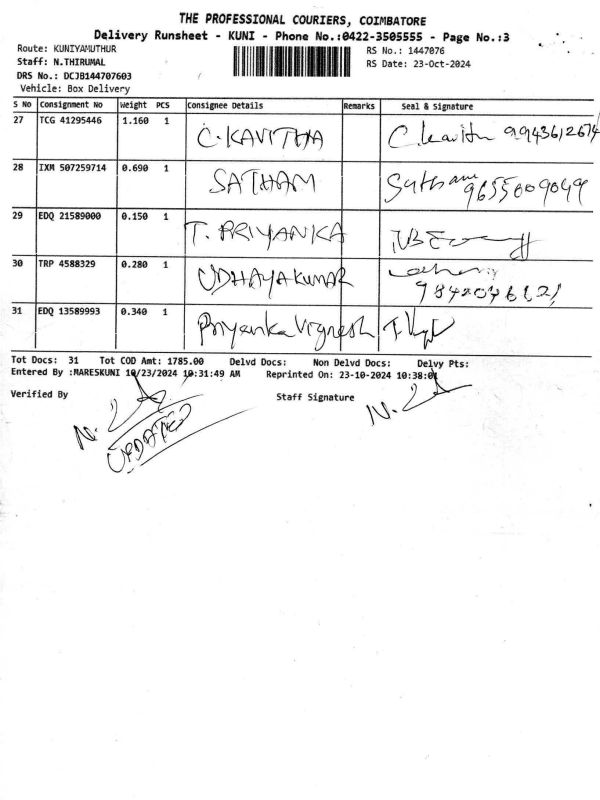 THE PROFESSIONAL COURIERS, COIMBATORE
Delivery Runsheet - KUNI - Phone No.:0422-3505555 - Page No.:3
Route: KUNIYAMUTHUR RS No.: 1447076
Staff: N.THIRUMAL RS Date: 23-Oct-2024
DRS No.: DCJB144707603
Vehicle: Box Delivery
S No Consignment No Weight PCS Consignee Details Remarks Seal & Signature
27 TCG 41295446 1.160 1 C.KAVITHA
28 IXM 507259714 0.690 1 SATHAM 9655009049
29 EDQ 21589000 0.150 1 T. PRIYANKA
30 TRP 4588329 0.280 1 UDHAYAKUMAR
31 EDQ 13589993 0.340 1 Priyanka Vignesh
Tot Docs: 31 Tot COD Amt: 1785.00 Delvd Docs: Non Delvd Docs: Delvy Pts:
Entered By :MARESKUNI 10/23/2024 10:31:49 AM Reprinted On: 23-10-2024 10:38:01
Verified By Staff Signature
UPDATED